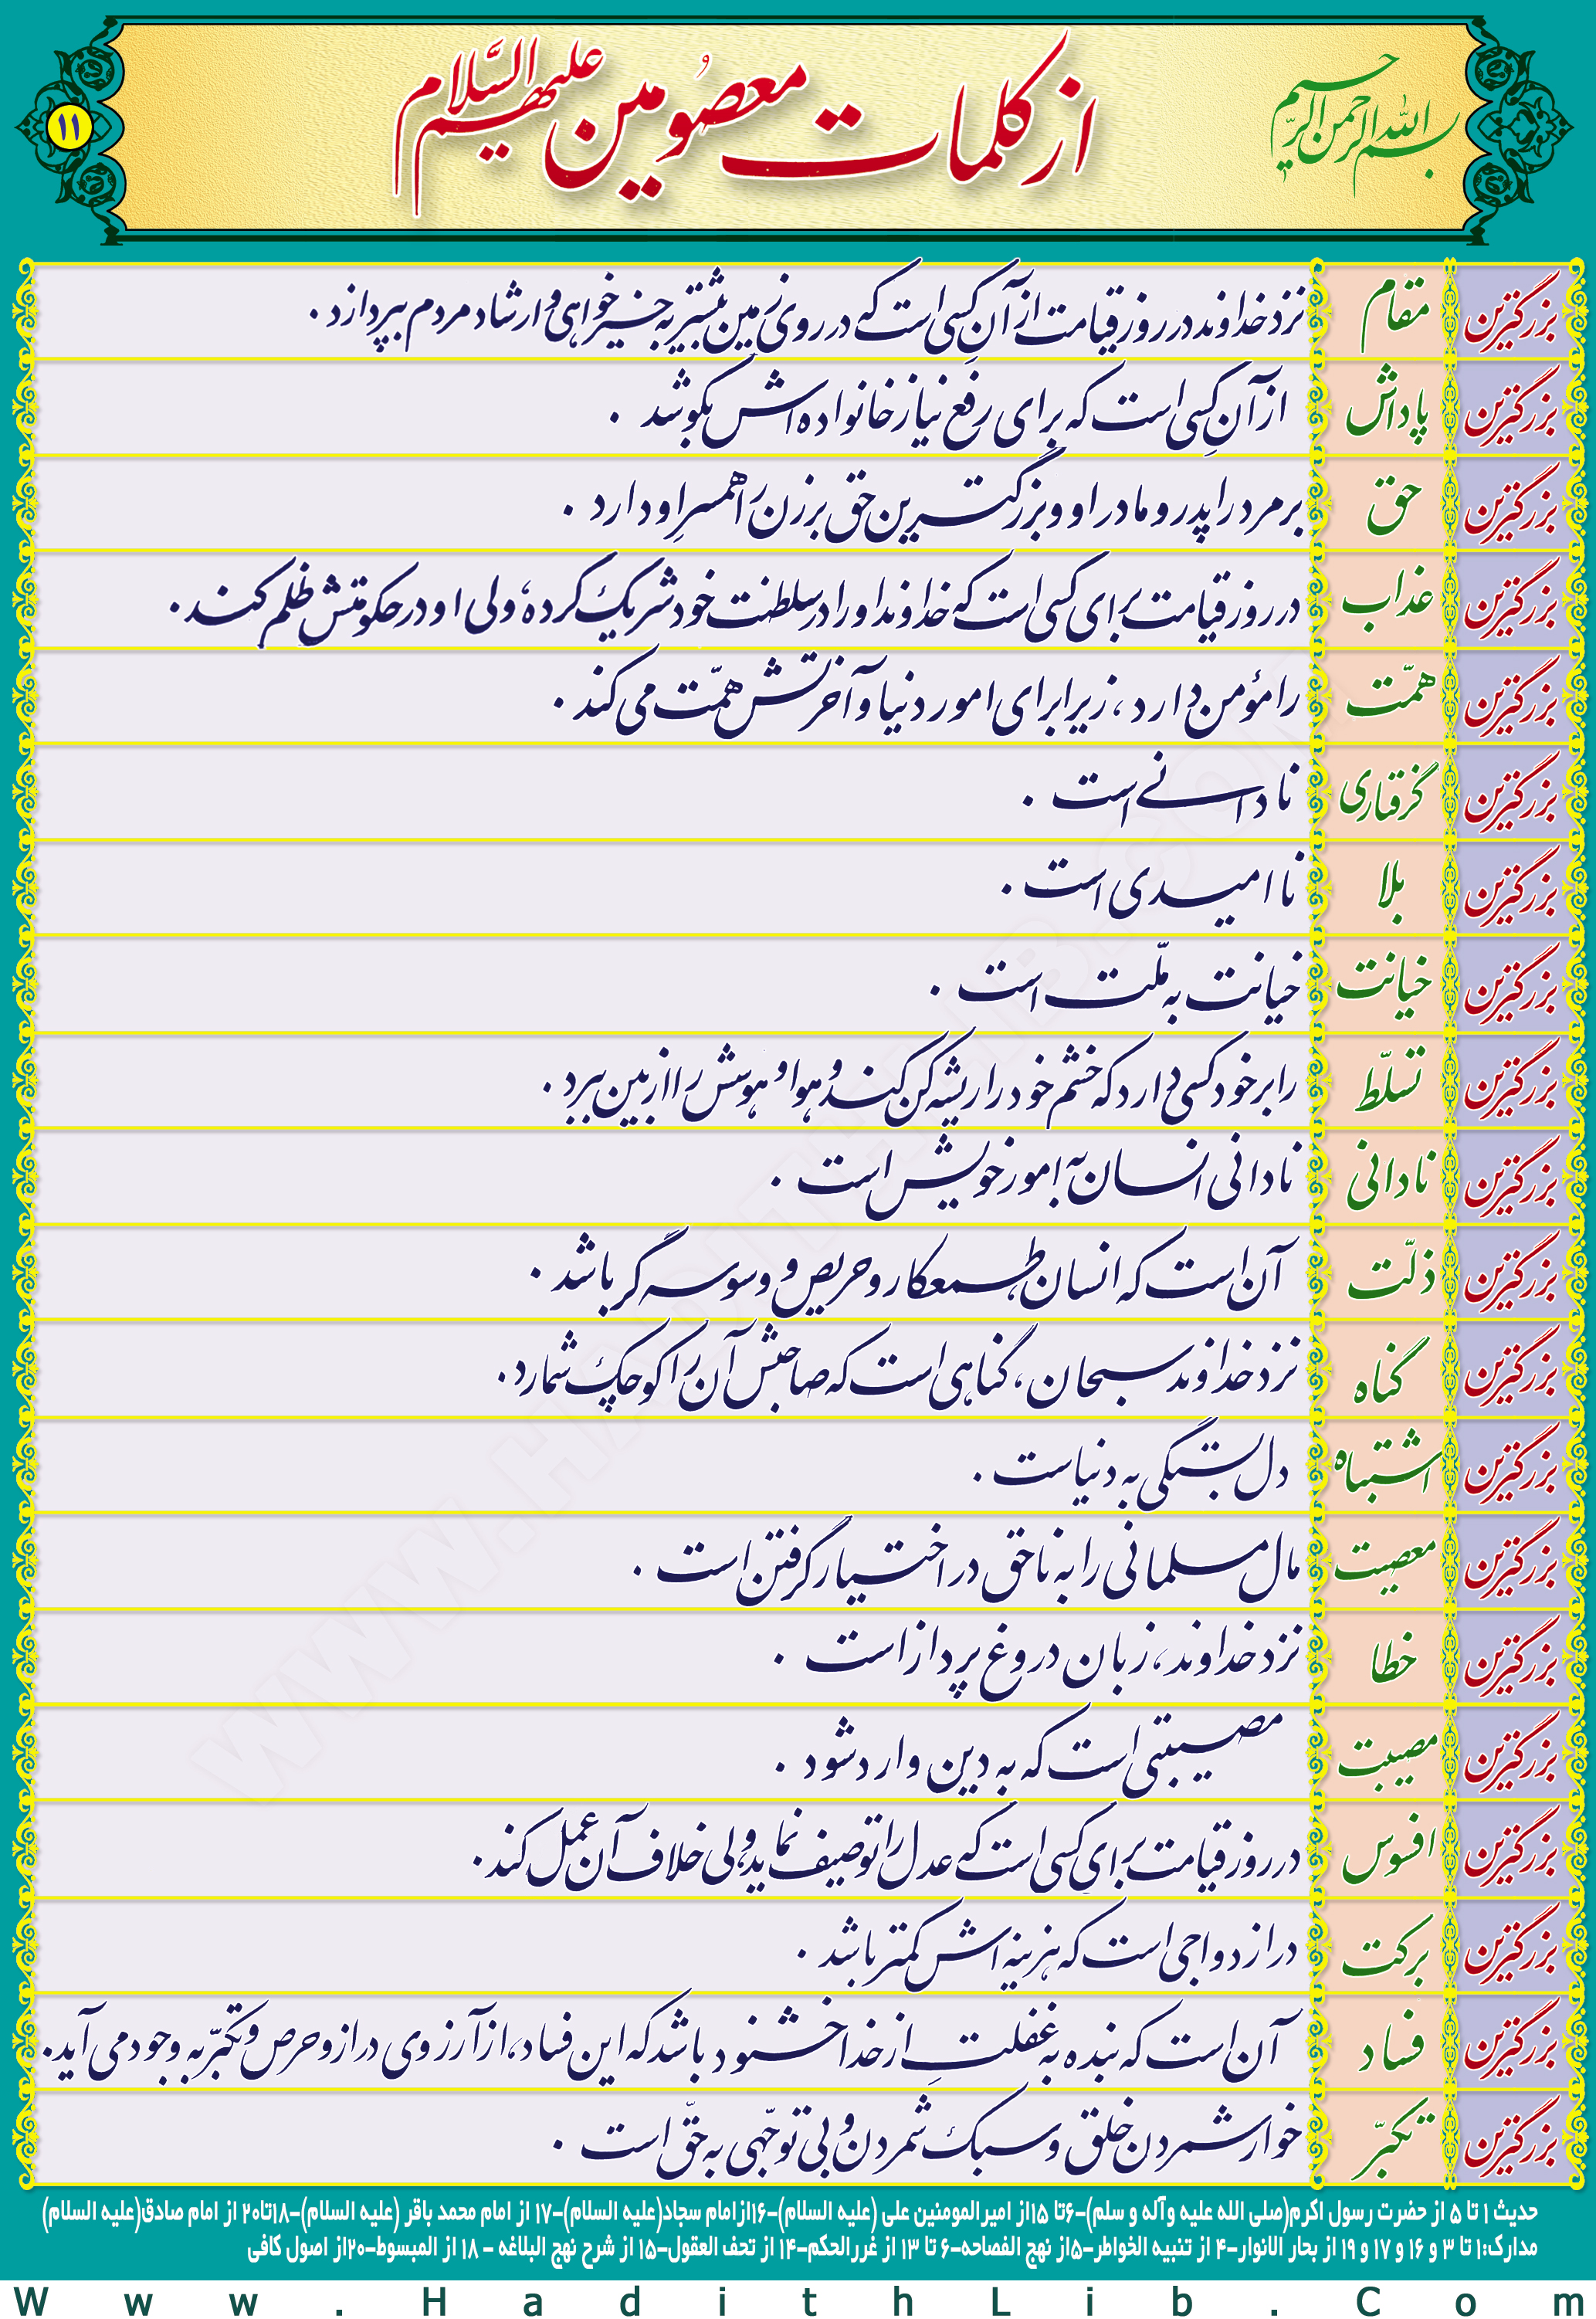 بسم الله الرحمن الرحیم
از کلمات معصومین علیهم السّلام
۱۱
بزرگترین مقام نزد خداوند در روز قیامت از آنِ کسی است که در روی زمین بیشتر به خیرخواهی و ارشاد مردم بپردازد.
بزرگترین پاداش از آنِ کسی است که برای رفع نیاز خانواده اش بکوشد.
بزرگترین حق بر مرد را پدر و مادر او و بزرگترین حق بر زن را همسرِ او دارد.
بزرگترین عذاب در روز قیامت برای کسی است که خداوند او را در سلطنت خود شریک کرده، ولی او در حکومتش ظلم کند.
بزرگترین همّت را مؤمن دارد، زیرا برای امور دنیا و آخرتش همّت می کند.
بزرگترین گرفتاری نادانی است.
بزرگترین بلا ناامیدی است.
بزرگترین خیانت خیانت به ملّت است.
بزرگترین تسلّط را بر خود کسی دارد که خشم خود را ریشه کن کند و هوا و هوسش را از بین ببرد.
بزرگترین نادانی نادانی انسان به امور خویش است.
بزرگترین ذلّت آن است که انسان طمعکار و حریص و وسوسه گر باشد.
بزرگترین گناه نزد خداوند سبحان، گناهی است که صاحبش آن را کوچک شمارد.
بزرگترین اشتباه دل بستگی به دنیاست.
بزرگترین معصیت مال مسلمانی را به ناحق در اختیار گرفتن است.
بزرگترین خطا نزد خداوند، زبان دروغ پرداز است.
بزرگترین مصیبت مصیبتی است که به دین وارد شود.
بزرگترین افسوس در روز قیامت برای کسی است که عدل را توصیف نماید ولی خلاف آن عمل کند.
بزرگترین برکت در ازدواجی است که هزینه اش کمتر باشد.
بزرگترین فساد آن است که بنده به غفلتِ از خدا خشنود باشد که این فساد، از آرزوی دراز و حرص و تکبّر به وجود می آید.
بزرگترین تکبّر خوار شمردن خلق و سبک شمردن و بی توجّهی به حقّ است.
حدیث ۱ تا ۵ از حضرت رسول اکرم(صلی الله علیه وآله و سلم)-۶تا ۱۵از امیرالمومنین علی (علیه السلام)-۱۶ازامام سجاد(علیه السلام)-۱۷ از امام محمد باقر (علیه السلام)-۱۸تا۲۰ از امام صادق(علیه السلام)
مدارک:۱ تا ۳ و ۱۶ و ۱۷ و ۱۹ از بحار الانوار-۴ از تنبیه الخواطر-۵از نهج الفصاحه-۶ تا ۱۳ از غررالحکم-۱۴ از تحف العقول-۱۵ از شرح نهج البلاغه - ۱۸ از المبسوط-۲۰از اصول کافی
Www.HadithLib.Com
WWW.HADITHLIB.COM